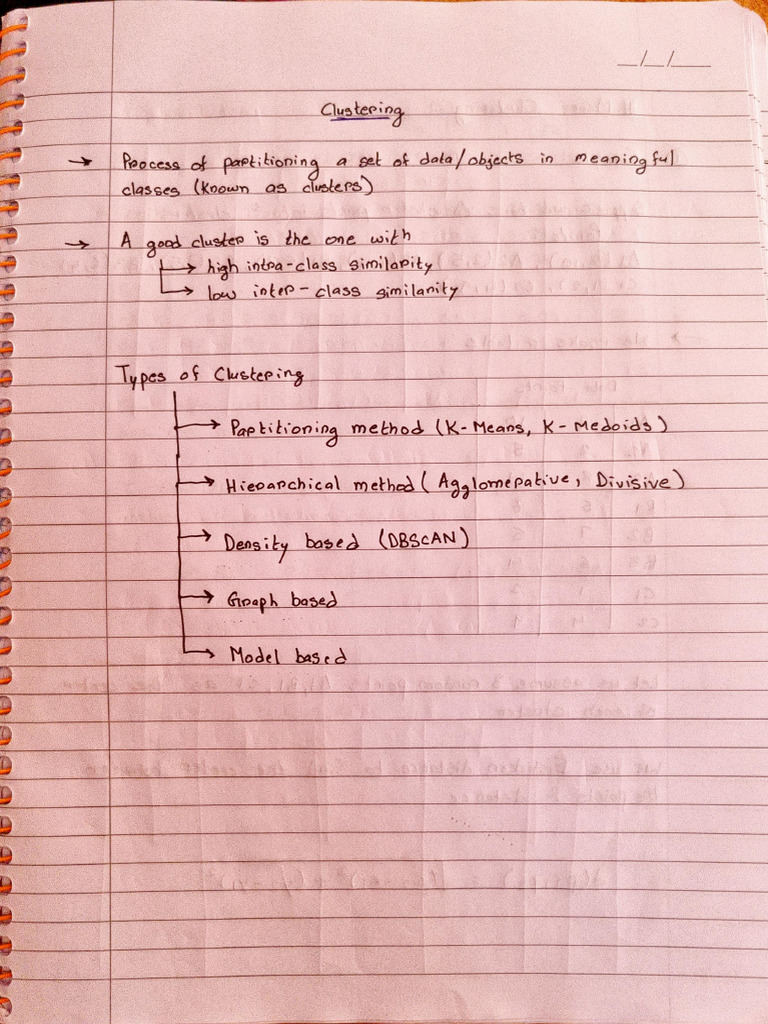 __/__/____
Clustering
→ Process of partitioning a set of data/objects in meaningful
classes (known as clusters)
→ A good cluster is the one with
→ high intra-class similarity
→ low inter-class similarity
Types of Clustering
→ Partitioning method (K-Means, K-Medoids)
→ Hierarchical method (Agglomerative, Divisive)
→ Density based (DBSCAN)
→ Graph based
→ Model based